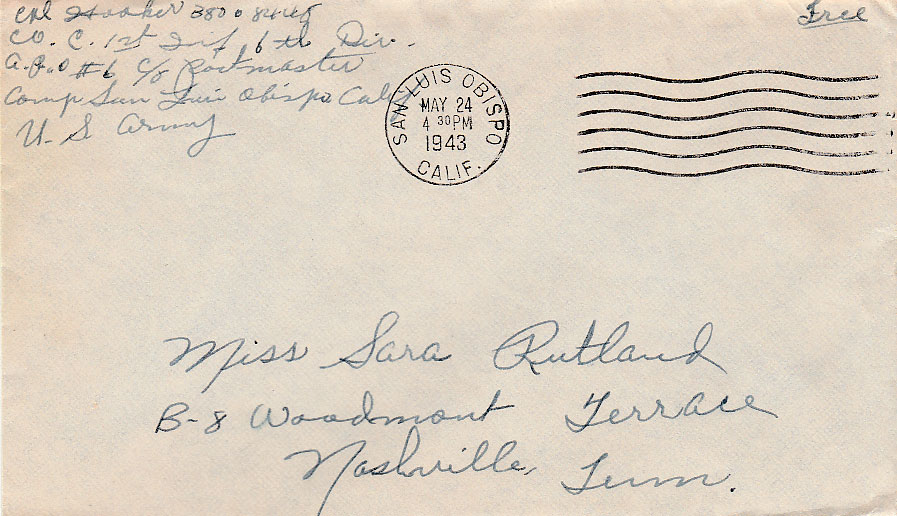 Cpl Hooker
Free
Co. C. 1st Inf 6th Div.
A.P.O #6 c/o Postmaster
Camp San Luis Obispo Cal
U.S Army
SAN LUIS OBISPO
MAY 24
4 30 PM
1943
CALIF.
Miss Sara Rutland
B-8 Woodmont Terrace
Nashville, Tenn.